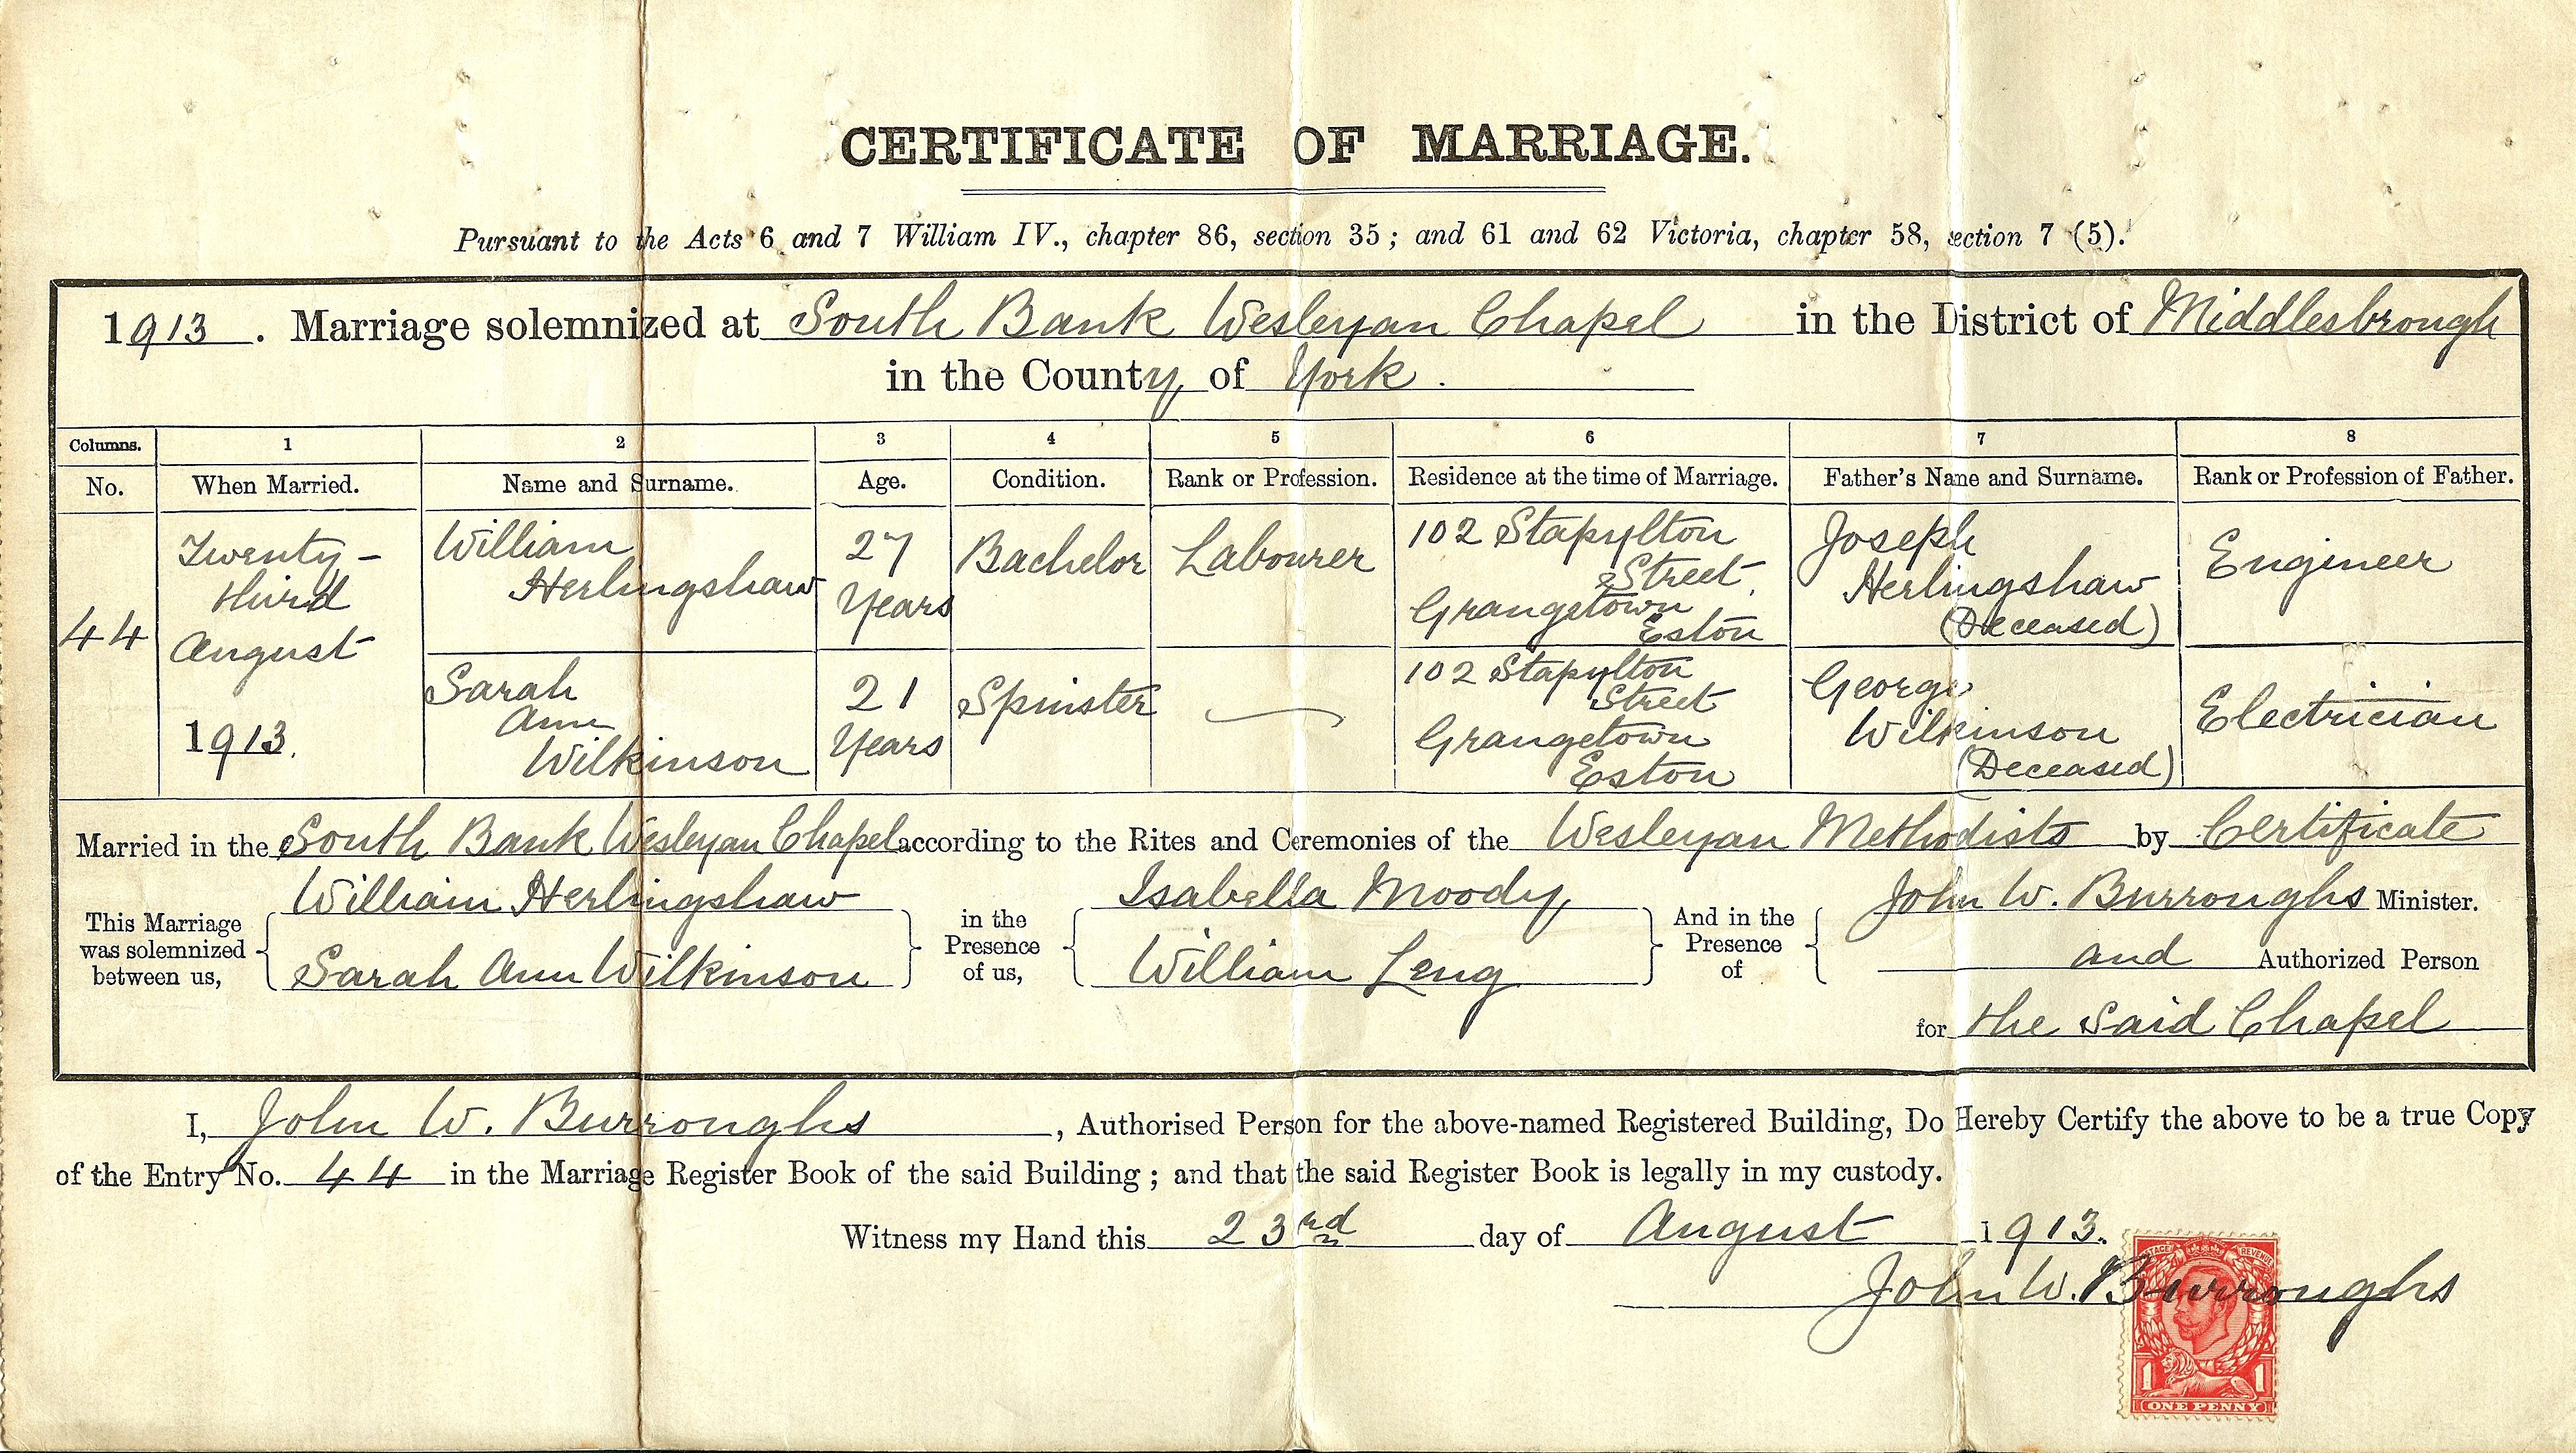 CERTIFICATE OF MARRIAGE.
Pursuant to the Acts 6 and 7 William IV., chapter 86, section 35; and 61 and 62 Victoria, chapter 58, section 7 (5).
1913. Marriage solemnized at South Bank Wesleyan Chapel in the District of Middlesbrough
in the County of York.
Columns. 1 2 3 4 5 6 7 8
No. When Married. Name and Surname. Age. Condition. Rank or Profession. Residence at the time of Marriage. Father's Name and Surname. Rank or Profession of Father.
44
Twenty-
third
August
1913.
William
Herlingshaw
27
Years
Bachelor
Labourer
102 Stapylton
Street,
Grangetown
Eston
Joseph
Herlingshaw
(Deceased)
Engineer
Sarah
Ann
Wilkinson
21
Years
Spinster
102 Stapylton
Street
Grangetown
Eston
George
Wilkinson
(Deceased)
Electrician
Married in the South Bank Wesleyan Chapel according to the Rites and Ceremonies of the Wesleyan Methodists by Certificate
This Marriage
was solemnized
between us,
William Herlingshaw
Sarah Ann Wilkinson
in the
Presence
of us,
Isabella Moody
William Leng
And in the
Presence
of
John W. Burroughs Minister.
and Authorized Person
for the said Chapel
I, John W. Burroughs, Authorised Person for the above-named Registered Building, Do Hereby Certify the above to be a true Copy
of the Entry No. 44 in the Marriage Register Book of the said Building; and that the said Register Book is legally in my custody.
Witness my Hand this 23rd day of August 1913.
John W. Burroughs
POSTAGE REVENUE
1 1
ONE PENNY